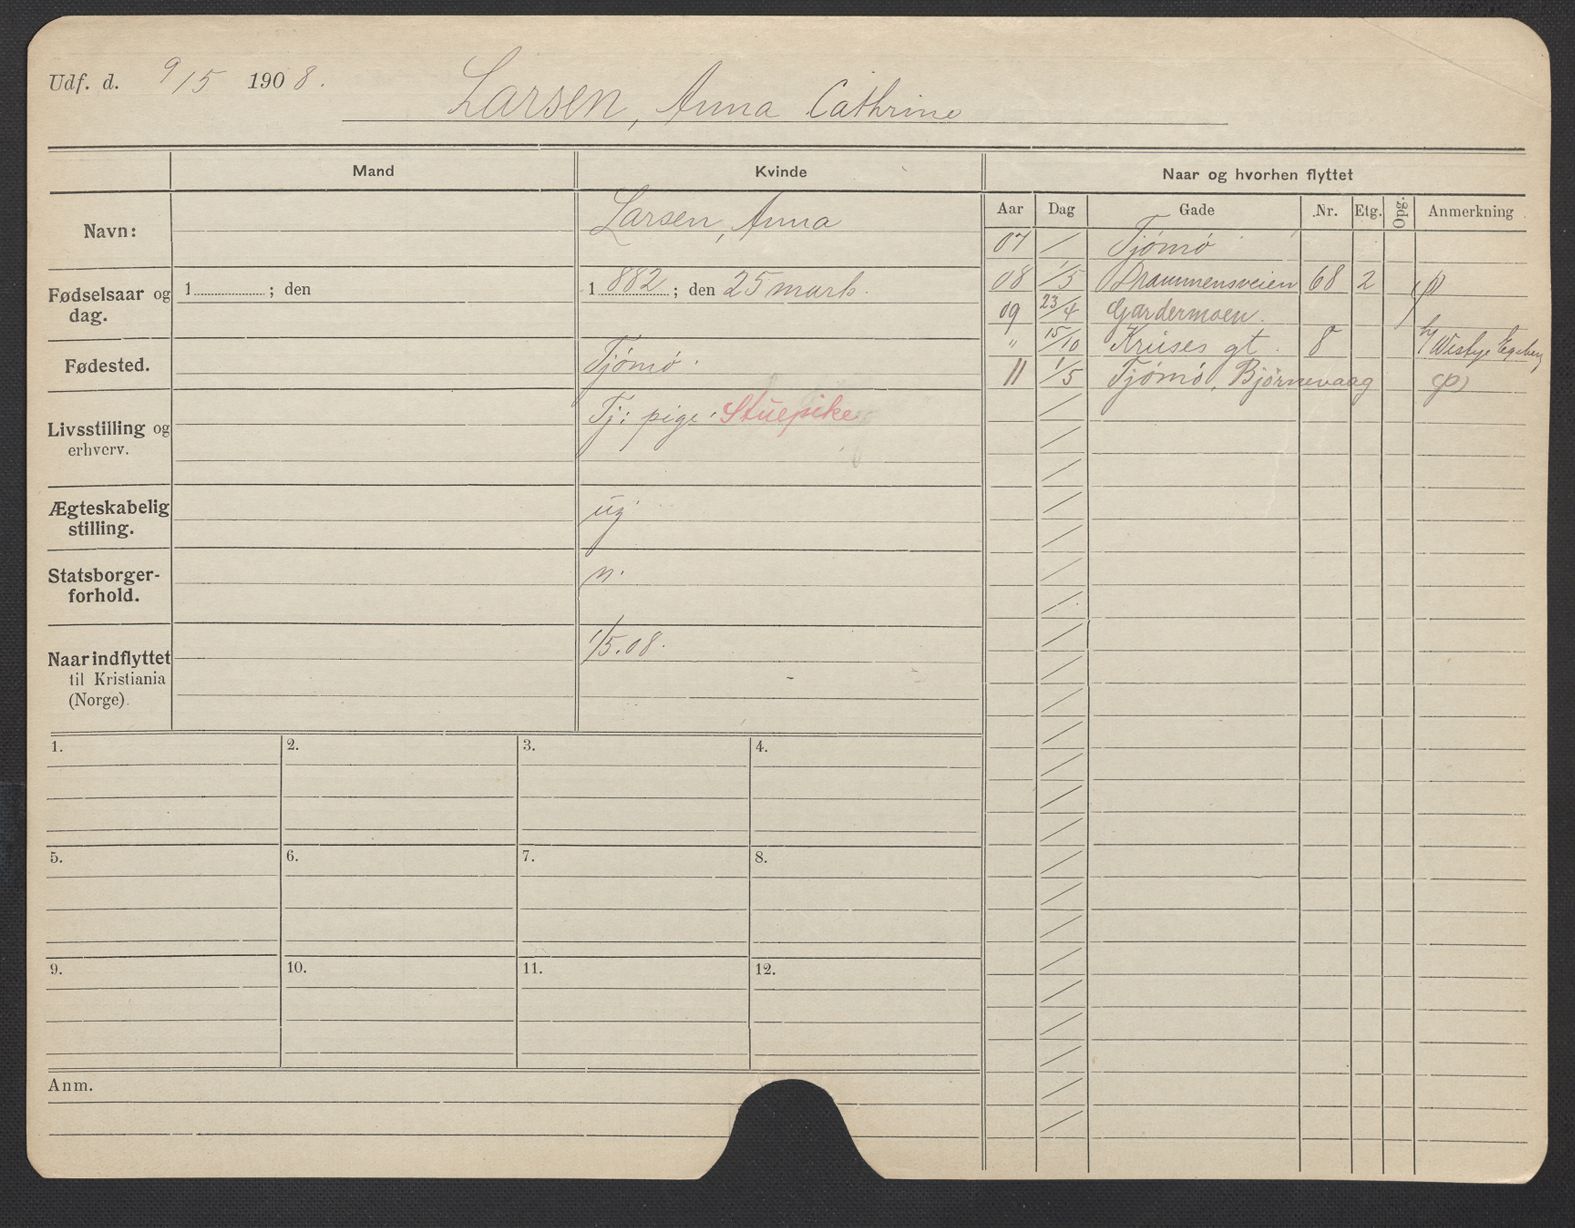 Udf. d. 9/5 1908.
Larsen, Anna Cathrine
Mand
Kvinde
Naar og hvorhen flyttet
Aar Dag Gade Nr. Etg. Opg. Anmerkning
Navn: Larsen, Anna
Fødselsaar og dag. 1 ; den
1 882 ; den 25 marts.
Fødested. Tjømø.
Livsstilling og erhverv. Tj: pige. Stuepike
Ægteskabelig stilling. ug
Statsborgerforhold. n.
Naar indflyttet til Kristiania (Norge). 1/5.08.
07 / Tjømø
08 1/5 Drammensveien 68 2 p
09 23/4 Gardermoen.
" 15/10 Kruses gt. 8 h/ Westye Egeberg
11 1/5 Tjømø, Bjørnevaag (p)
1. 2. 3. 4.
5. 6. 7. 8.
9. 10. 11. 12.
Anm.